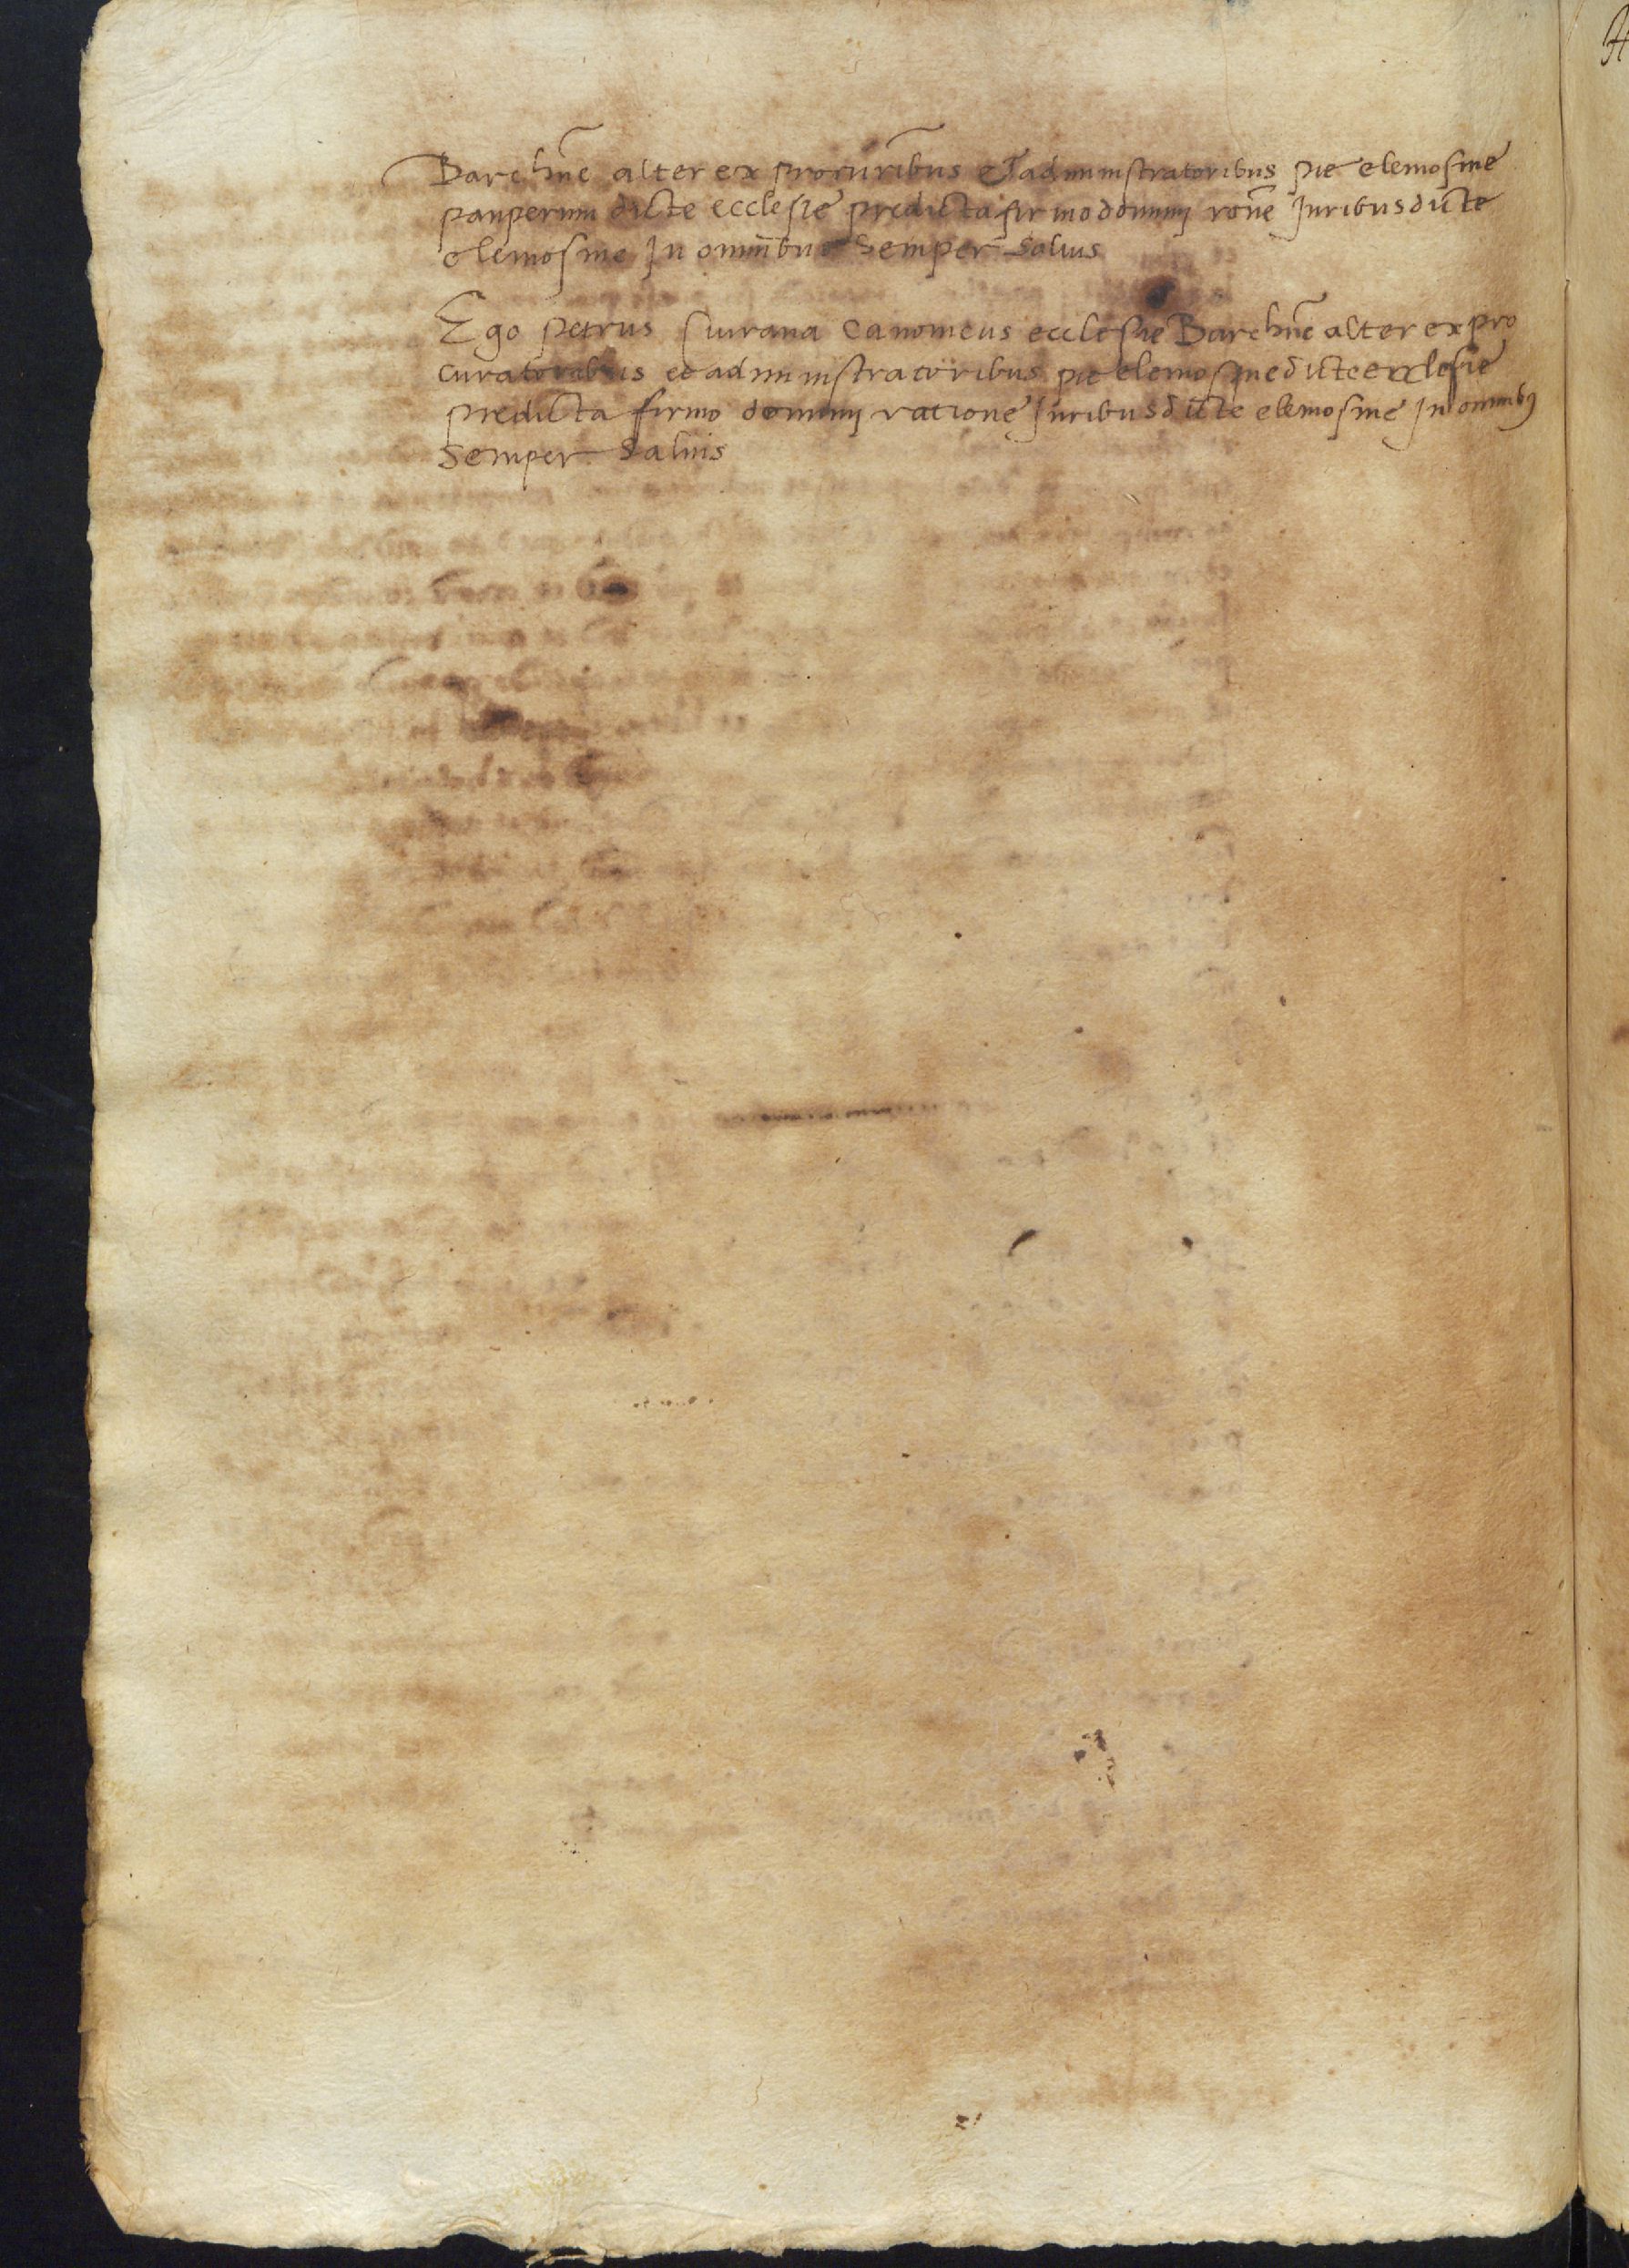 Barchne alter ex procuribus et administratoribus pie elemosine
pauperum dicte ecclesie predicta firmo dominij rone Juribus dicte
elemosine In omnibus Semper Salvis
Ego petrus sivrana Canonicus ecclesie Barchne alter ex pro
curatoribus et administratoribus pie elemosine dicte ecclesie
predicta firmo dominij ratione Juribus dicte elemosine In omnibus
Semper Salvis